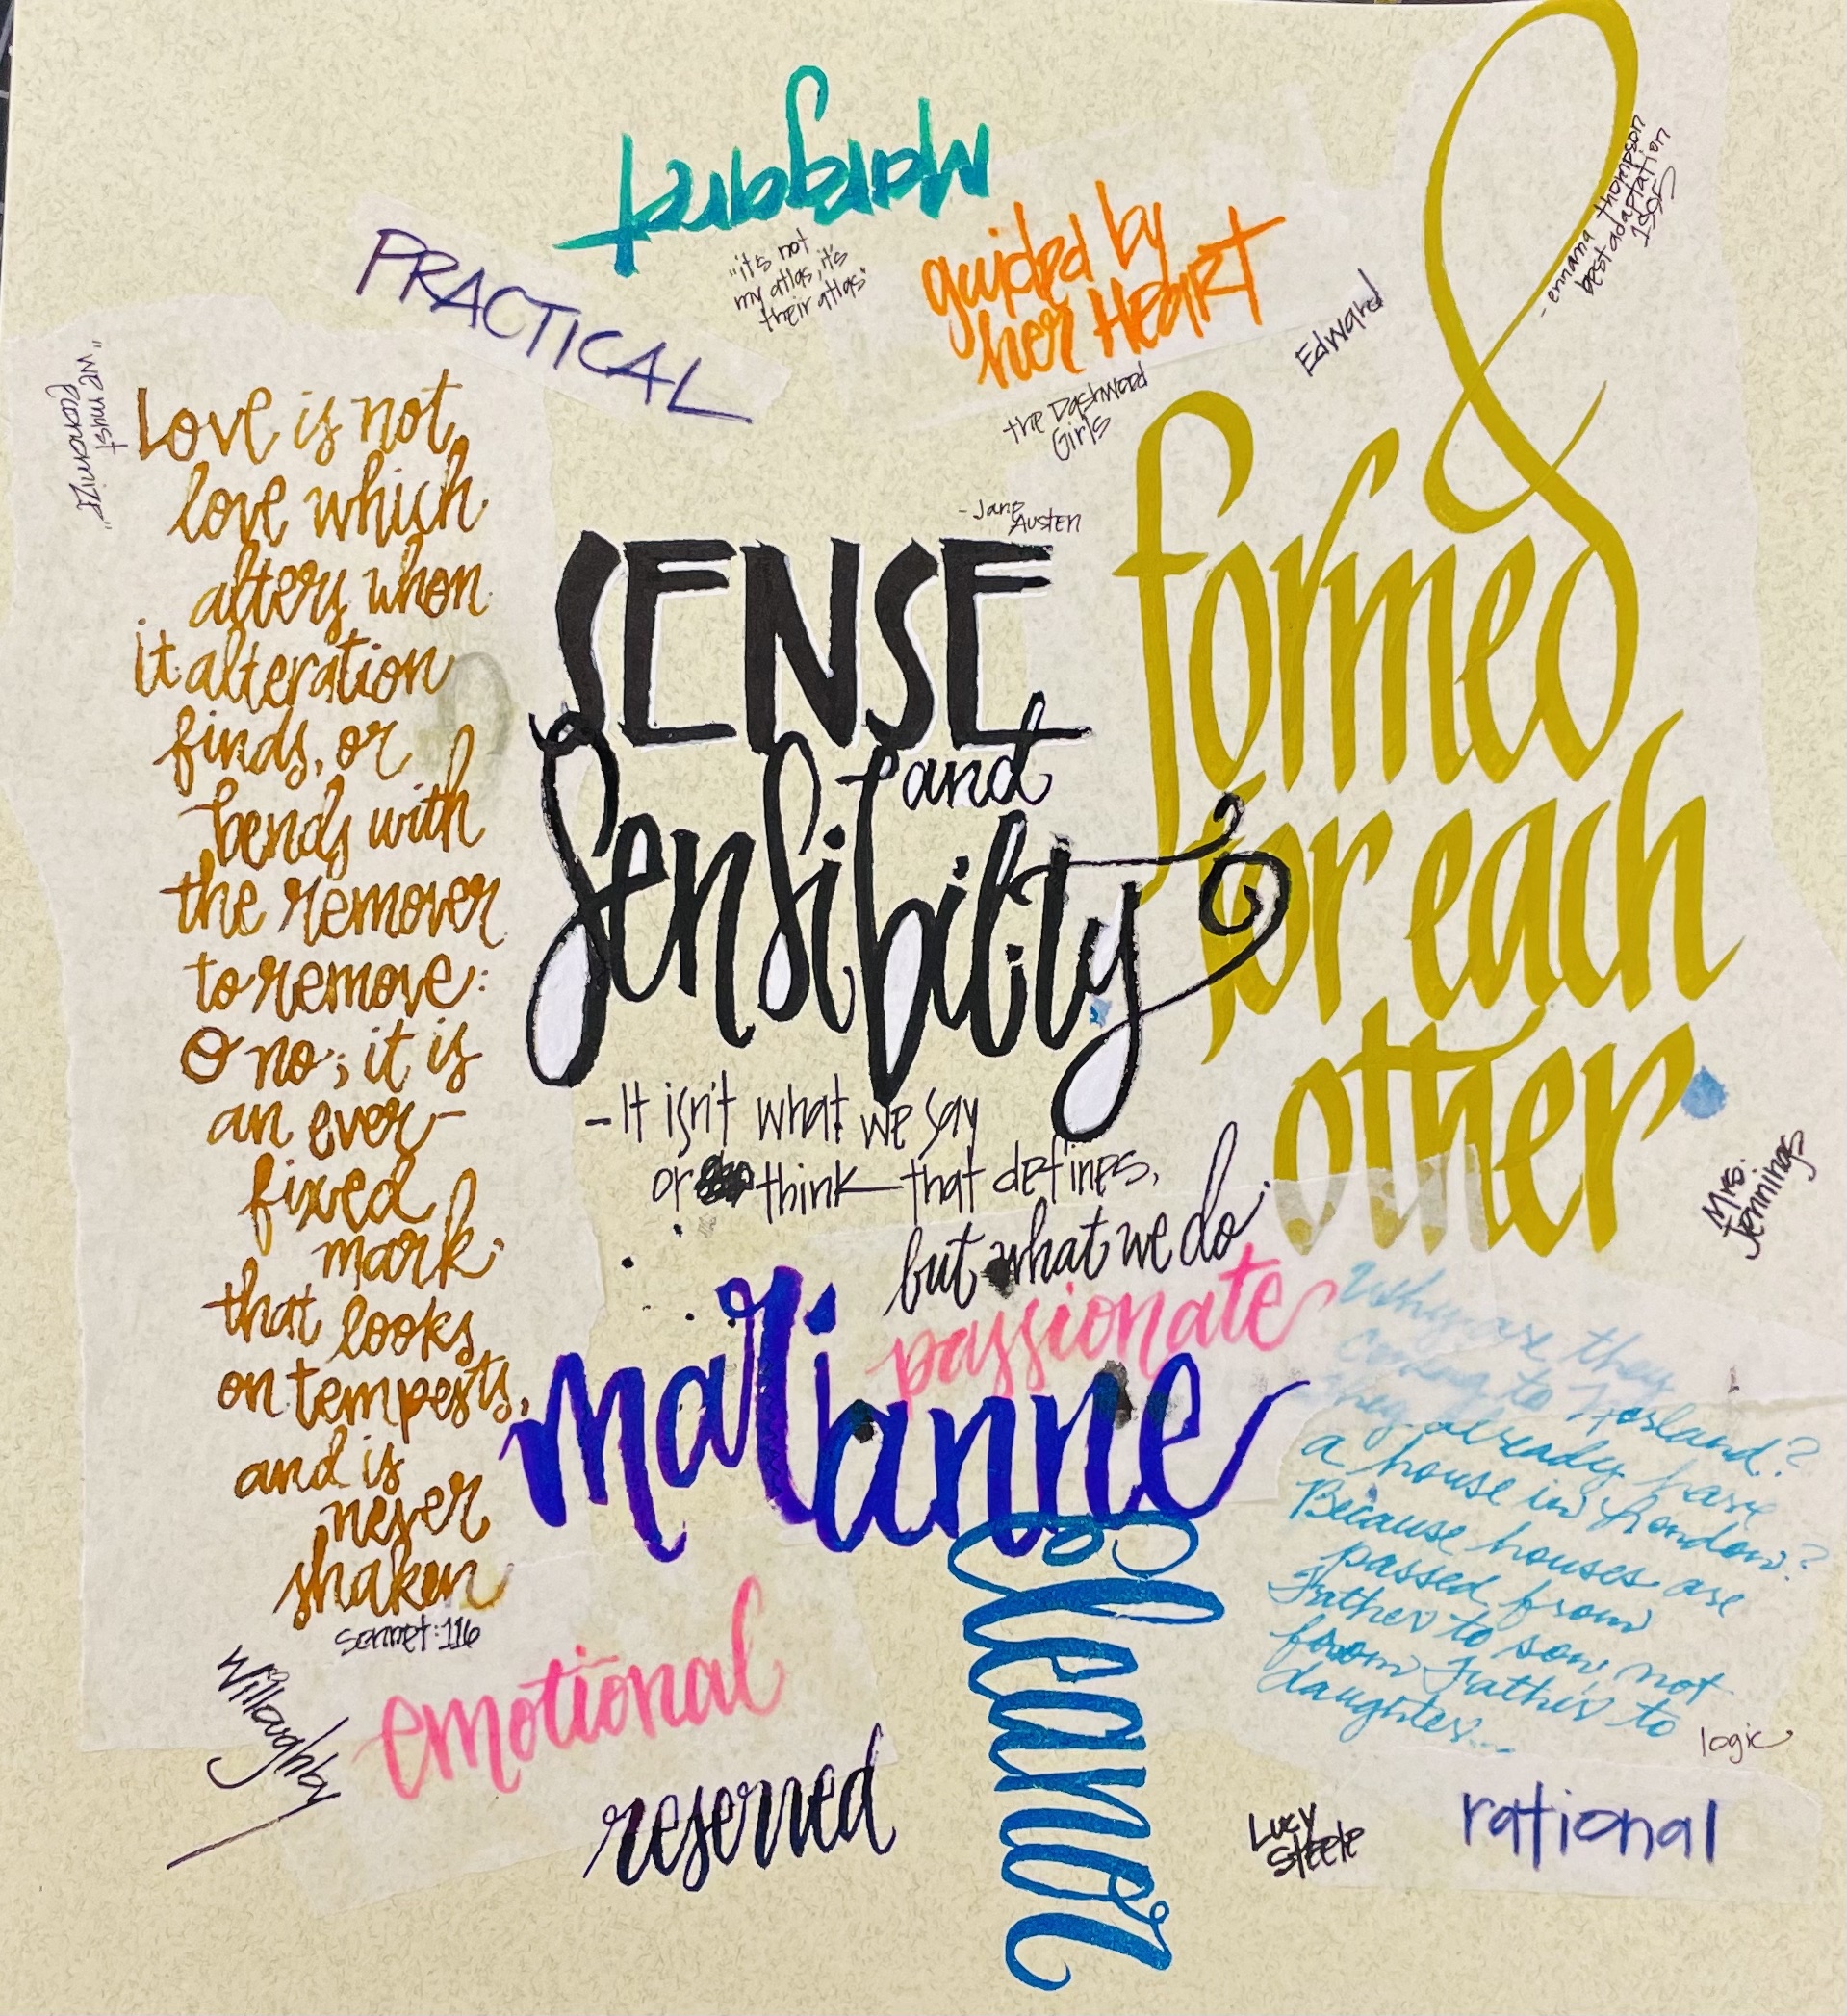 margaret
PRACTICAL
"it's not
my atlas, it's
their atlas"
guided by
her HEART
the Dashwood
Girls
Edward
&
- emma thompson
best adaptation
1995
"we must
Economize"
Love is not
love which
alters when
it alteration
finds, or
bends with
the remover
to remove:
O no; it is
an ever-
fixed
mark
that looks
on tempests,
and is
never
shaken
Sonnet: 116
- Jane
Austen
SENSE
and
Sensibility
formed
for each
other
- It isn't what we say
or think that defines,
but what we do.
Mrs.
Jennings
passionate
marianne
Eleanor
Why are they
coming to Norland?
they already have
a house in London?
Because houses are
passed from
Father to son, not
from Father to
daughter...
logic
Willoughby
emotional
reserved
Lucy
Steele
rational